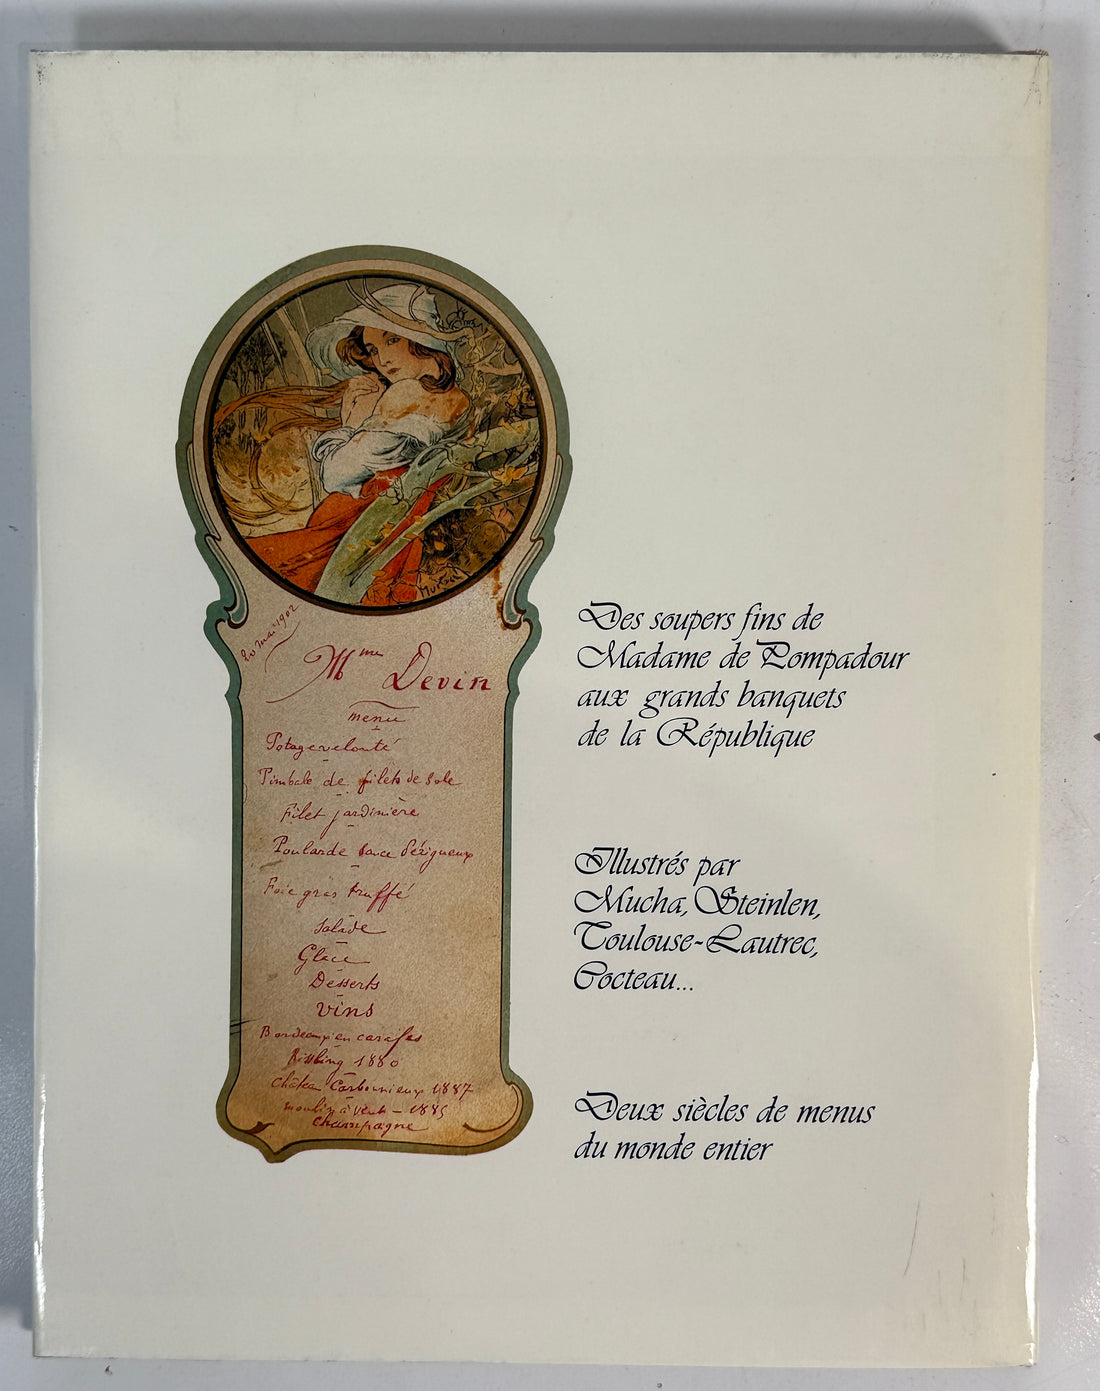 20 mai 1902
Mme Devin
menu
Potage velouté
Timbale de filets de Sole
Filet jardinière
Poularde sauce Périgueux
Foie gras truffé
Salade
Glace
Desserts
Vins
Bordeaux en carafes
Riesling 1880
Château Carbonnieux 1887
moulin à vent - 1885
Champagne
Mucha
Des soupers fins de
Madame de Pompadour
aux grands banquets
de la République
Illustrés par
Mucha, Steinlen,
Toulouse-Lautrec,
Cocteau...
Deux siècles de menus
du monde entier